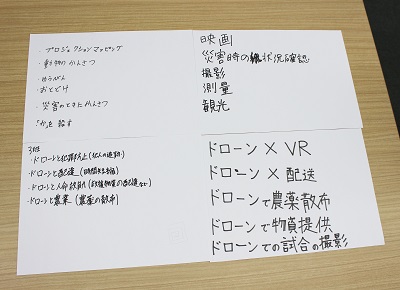 ・プロジェクションマッピング
・動物のかんさつ
・おとどけ
・災害のときにかんさつ
映画
災害時の状況確認
撮影
測量
観光
3班
・ドローンと犯罪防止(犯人の追跡)
・ドローンと配達(時間短縮)
・ドローンと人命救助(救援物資の配達など)
・ドローンと農業(農薬の散布)
ドローン×VR
ドローン×配送
ドローンで農薬散布
ドローンで物資提供
ドローンでの試合の撮影